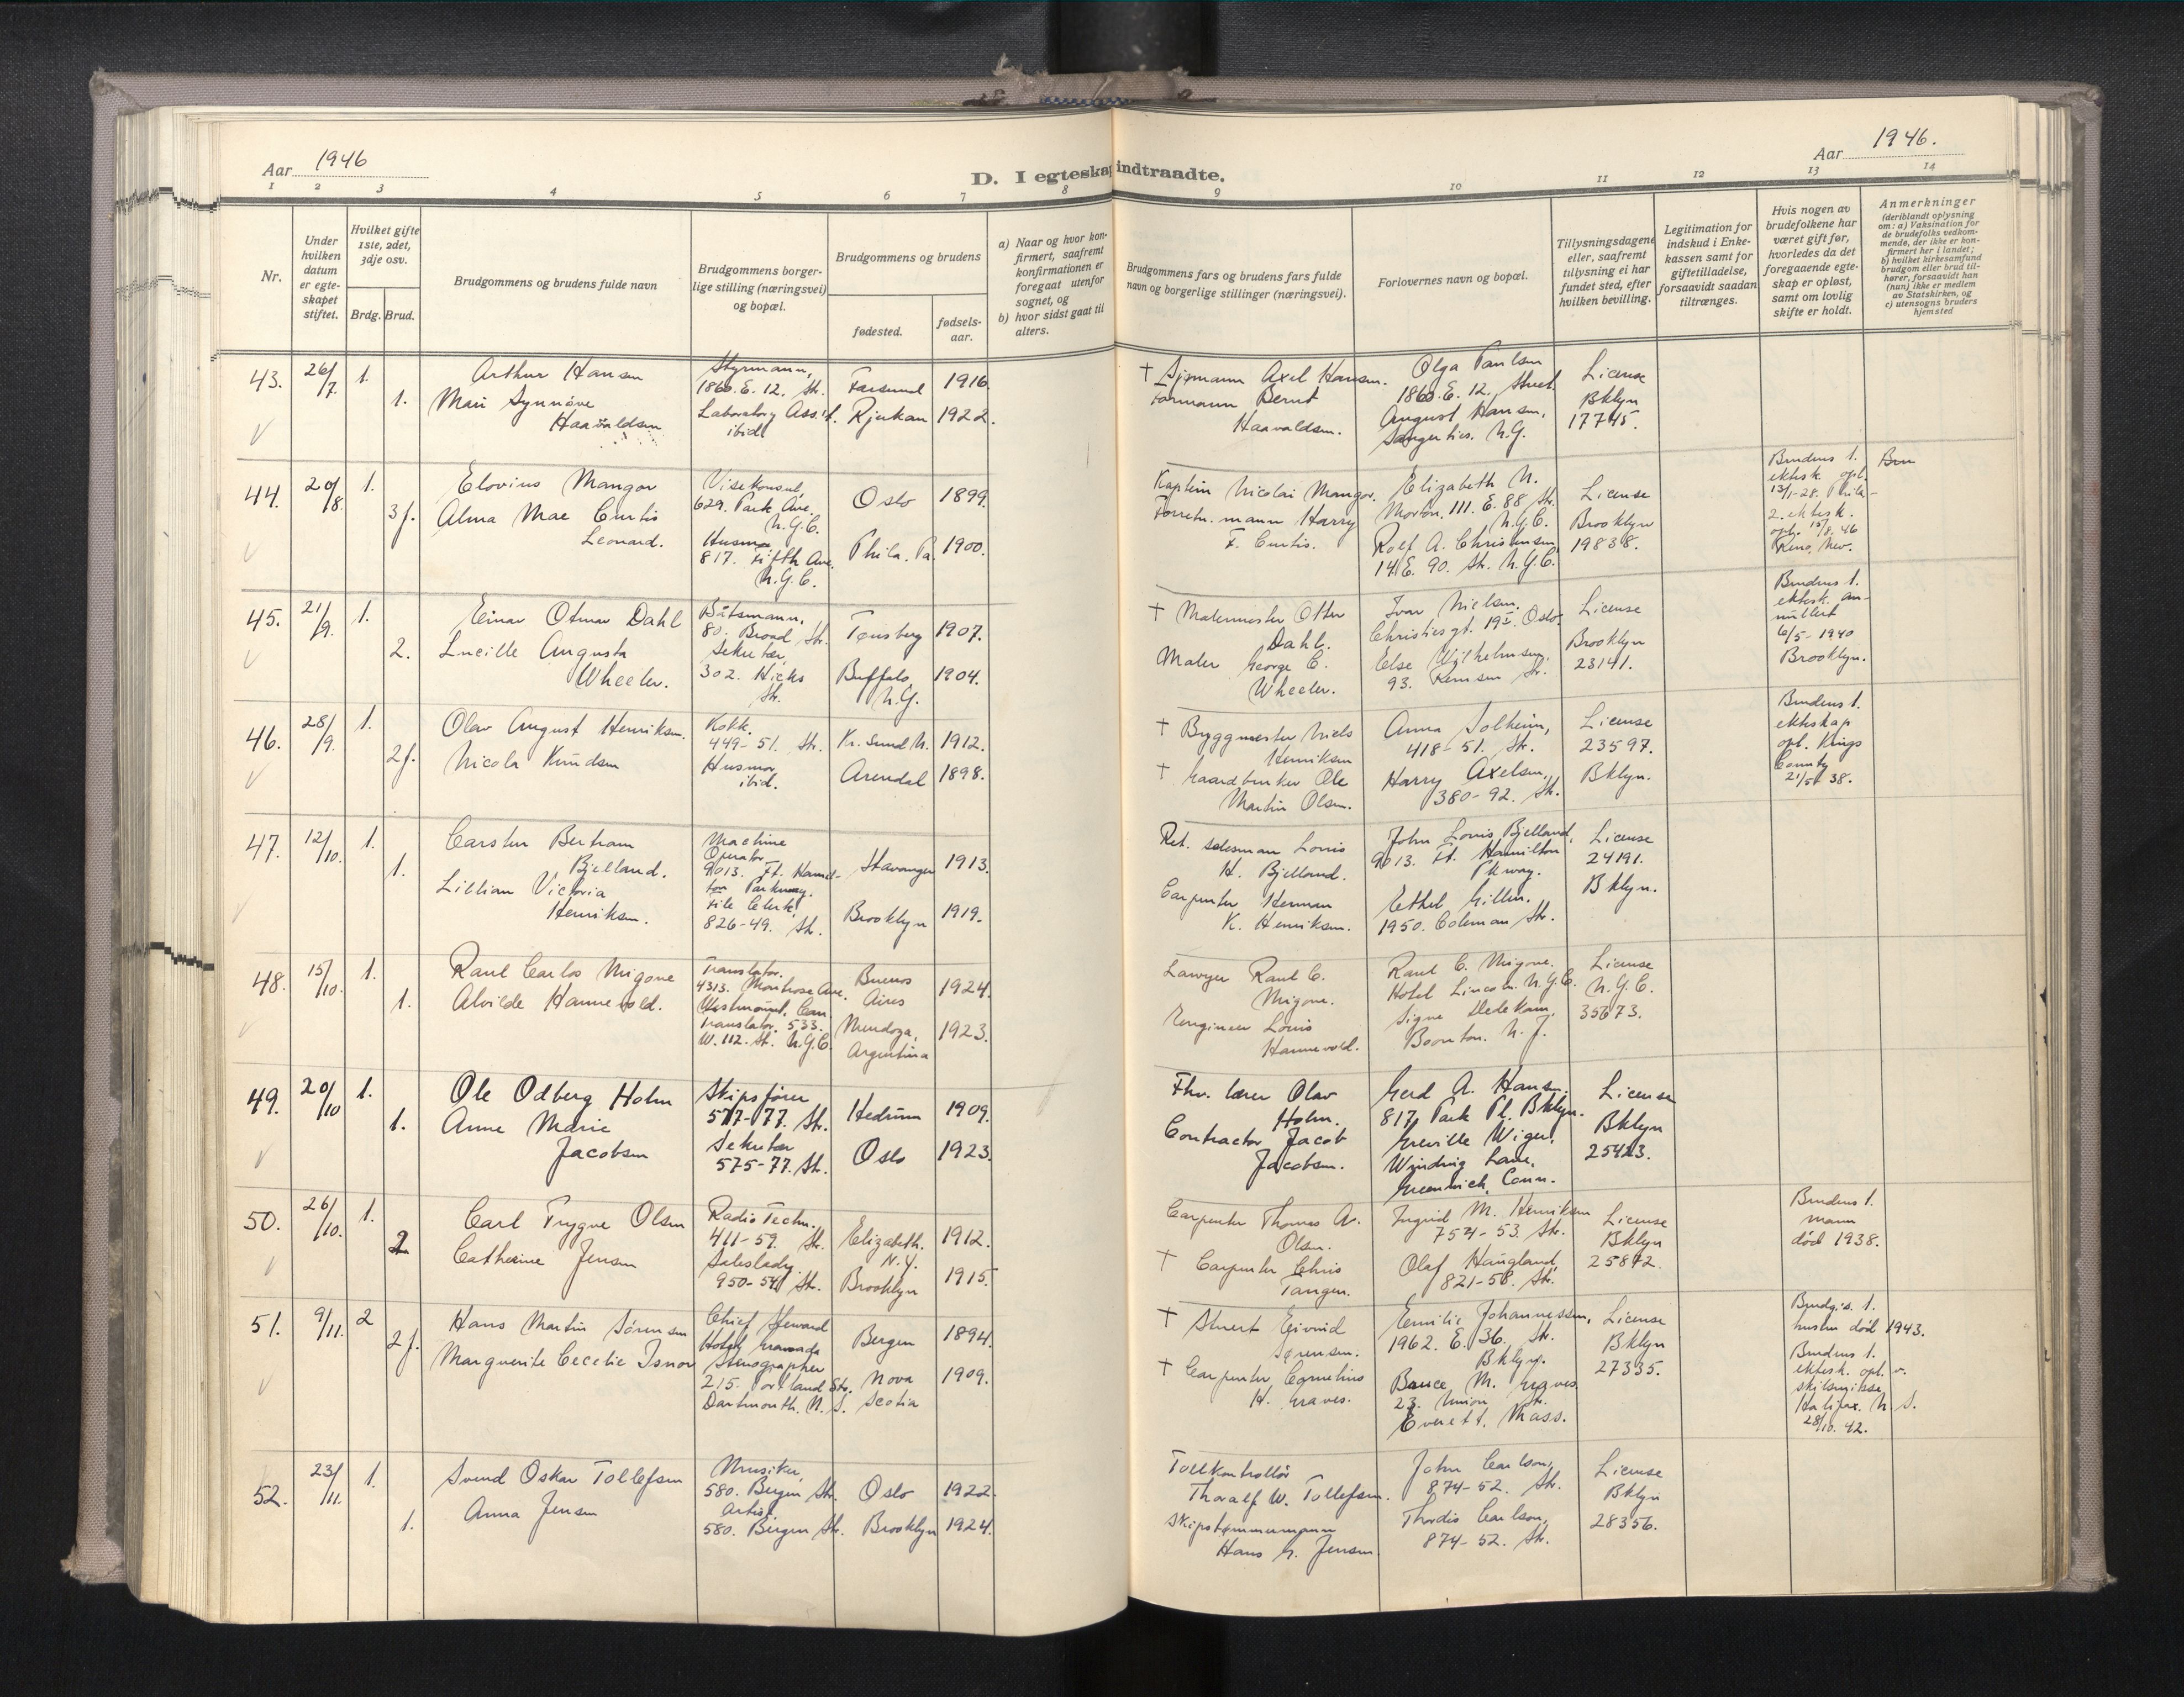 Aar 1946
D. I egteskap indtraadte.
Aar 1946.
1 2 3 4 5 6 7 8 9 10 11 12 13 14
Nr.
Under hvilken datum er egte-skapet stiftet.
Hvilket gifte 1ste, 2det, 3dje osv.
Brdg. Brud.
Brudgommens og brudens fulde navn
Brudgommens borger-
lige stilling (næringsvei)
og bopæl.
Brudgommens og brudens
fødested.
fødsels-
aar.
a) Naar og hvor kon-
firmert, saafremt
konfirmationen er
foregaat utenfor
sognet, og
b) hvor sidst gaat til
alters.
Brudgommens fars og brudens fars fulde
navn og borgerlige stillinger (næringsvei).
Forlovernes navn og bopæl.
Tillysningsdagene
eller, saafremt
tillysning ei har
fundet sted, efter
hvilken bevilling.
Legitimation for
indskud i Enke-
kassen samt for
giftetilladelse,
forsaavidt saadan
tiltrænges.
Hvis nogen av
brudefolkene har
været gift før,
hvorledes da det
foregaaende egte-
skap er opløst,
samt om lovlig
skifte er holdt.
Anmerkninger
(deriblandt oplysning
om: a) Vaksination for
de brudefolks vedkom-
mende, der ikke er kon-
firmert her i landet;
b) hvilket kirkesamfund
brudgom eller brud til-
hører, forsaavidt han
(hun) ikke er medlem
av Statskirken, og
c) utensogns bruders
hjemsted
43. 26/7. 1. 1.
Arthur Hansen
Mari Synnöve
Haavaldsen
Styrmann,
1860. E. 12. Str.
Laboratory Ass't.
ibid.
Farsund 1916.
Rjukan 1922.
† Sjømann Axel Hansen.
Formann Bernt
Haavaldsen.
Olga Paulsen
1860. E. 12. Street
August Hansen,
Saugerties. N.Y.
License
Bklyn
17745.
44. 20/8. 1. 3f.
Elovius Mangor
Alma Mae Curtis
Leonard.
Visekonsul,
629. Park Ave.
N.Y.C.
Husmor
817. Fifth Ave.
N.Y.C.
Oslo 1899.
Phila. Pa. 1900.
Kaptein Nicolai Mangor.
Forretn. mann Harry
F. Curtis.
Elizabeth N.
Morton. 111. E. 88 Str.
N.Y.C.
Rolf A. Christensen
14. E. 90. Str. N.Y.C.
License
Brooklyn
19838.
Brudens 1.
ektesk. opl.
13/1-28. Phila-
2. ektesk.
opl. 15/8. 46
Reno, Nev.
Bru
45. 21/9. 1. 2.
Einar Otmar Dahl
Lucille Augusta
Wheeler.
Båtsmann,
80. Broad Str.
Sekretær
302. Hicks
Str.
Tønsberg 1907.
Buffalo, N.Y. 1904.
† Malermester Otter
Dahl.
Maler George C.
Wheeler.
Ivar Nielsen.
Christiesgt. 19 I. Oslo.
Else Wilhelmsen,
93. Remsen Str.
License
Brooklyn
23141.
Brudens 1.
ektesk. an-
nullert
6/5-1940
Brooklyn.
46. 28/9. 1. 2f.
Olav August Henriksen.
Nicola Knudsen
Kokk.
449-51. Str.
Husmor
ibid.
Kr. Sund N. 1912.
Arendal 1898.
† Byggmester Niels
Henriksen
† Gaardbruker Ole
Martin Olsen.
Anna Solheim,
418-51. Str.
Harry Axelsen,
380-92. Str.
License
23597.
Bklyn.
Brudens 1.
ekteskap
opl. Kings
County
21/5-38.
47. 12/10. 1. 1.
Carsten Bertram
Bjelland.
Lillian Victoria
Henriksen.
Machine
Operator
9013. Ft. Hamil-
ton Parkway.
File Clerk,
826-49. Str.
Stavanger 1913.
Brooklyn 1919.
Ret. salesman Louis
H. Bjelland.
Carpenter Herman
K. Henriksen.
John Louis Bjelland,
9013. Ft. Hamilton
Pkway.
Ethel Gillen.
1950. Coleman Str.
License
24191.
Bklyn.
48. 15/10. 1. 1.
Raul Carlos Migone
Alvilde Hannevold.
Translator.
4313. Montrose Ave.
Westmount, Can.
Translator. 533.
W. 112. St. N.Y.C.
Buenos
Aires 1924.
Mendoza,
Argentina 1923.
Lawyer Raul C.
Migone.
Engineer Louis
Hannevold.
Raul C. Migone.
Hotel Lincoln. N.Y.C.
Signe Dedekam,
Boonton. N.J.
License
N.Y.C.
35673.
49. 20/10 1. 1.
Ole Odberg Holm
Anne Marie
Jacobsen
Skipsfører
577-77. Str.
Sekretær
575-77. Str.
Hedrum 1909.
Oslo 1923.
Fhv. lærer Olav
Holm.
Contractor Jacob
Jacobsen.
Gerd A. Hansen.
817, Park Pl. Bklyn.
Greville Wiger,
Winding Lane,
Greenwich, Conn.
License
Bklyn
25423.
50. 26/10. 1. 2
Carl Trygve Olsen
Catherine Jensen
Radio Techn.
411-59. Str.
Saleslady.
950-54 Str.
Elizabeth.
N.Y. 1912.
Brooklyn 1915.
Carpenter Thomas A.
Olsen.
† Carpenter Chris
Tangen.
Ingrid M. Henriksen
754-53. Str.
Olaf Haugland,
821-58. Str.
License
Bklyn
25872.
Brudens 1.
mann
död 1938.
51. 9/11. 2 2f.
Hans Martin Sörensen
Marguerite Cecelie Isnor
Chief Steward
Hotel Granada
Stenographer
215. Portland Str.
Dartmouth. N. S.
Bergen 1894.
Nova
Scotia 1909.
† Stuert Eivind
Sørensen.
† Carpenter Cornelius
H. Graves.
Emilie Johannessen,
1962. E. 36. Str.
Bklyn.
Bruce M. Graves
23. Union Str.
Everett. Mass.
License
Bklyn
27335.
Brudg.s. 1.
hustru död 1943.
Brudens 1.
ektesk. opl. v.
skilsmisse
Halifax. N. S.
28/10. 42.
52. 23/11. 1. 1.
Svend Oskar Tollefsen
Anna Jensen
Musiker,
580. Bergen Str.
Artist
580. Bergen Str.
Oslo 1922.
Brooklyn 1924.
Tollkontrollör
Thoralf W. Tollefsen.
Skipstømmermann
Hans G. Jensen.
John Carlson,
874-52. Str.
Thordis Carlson,
874-52. Str.
License
Bklyn
28356.